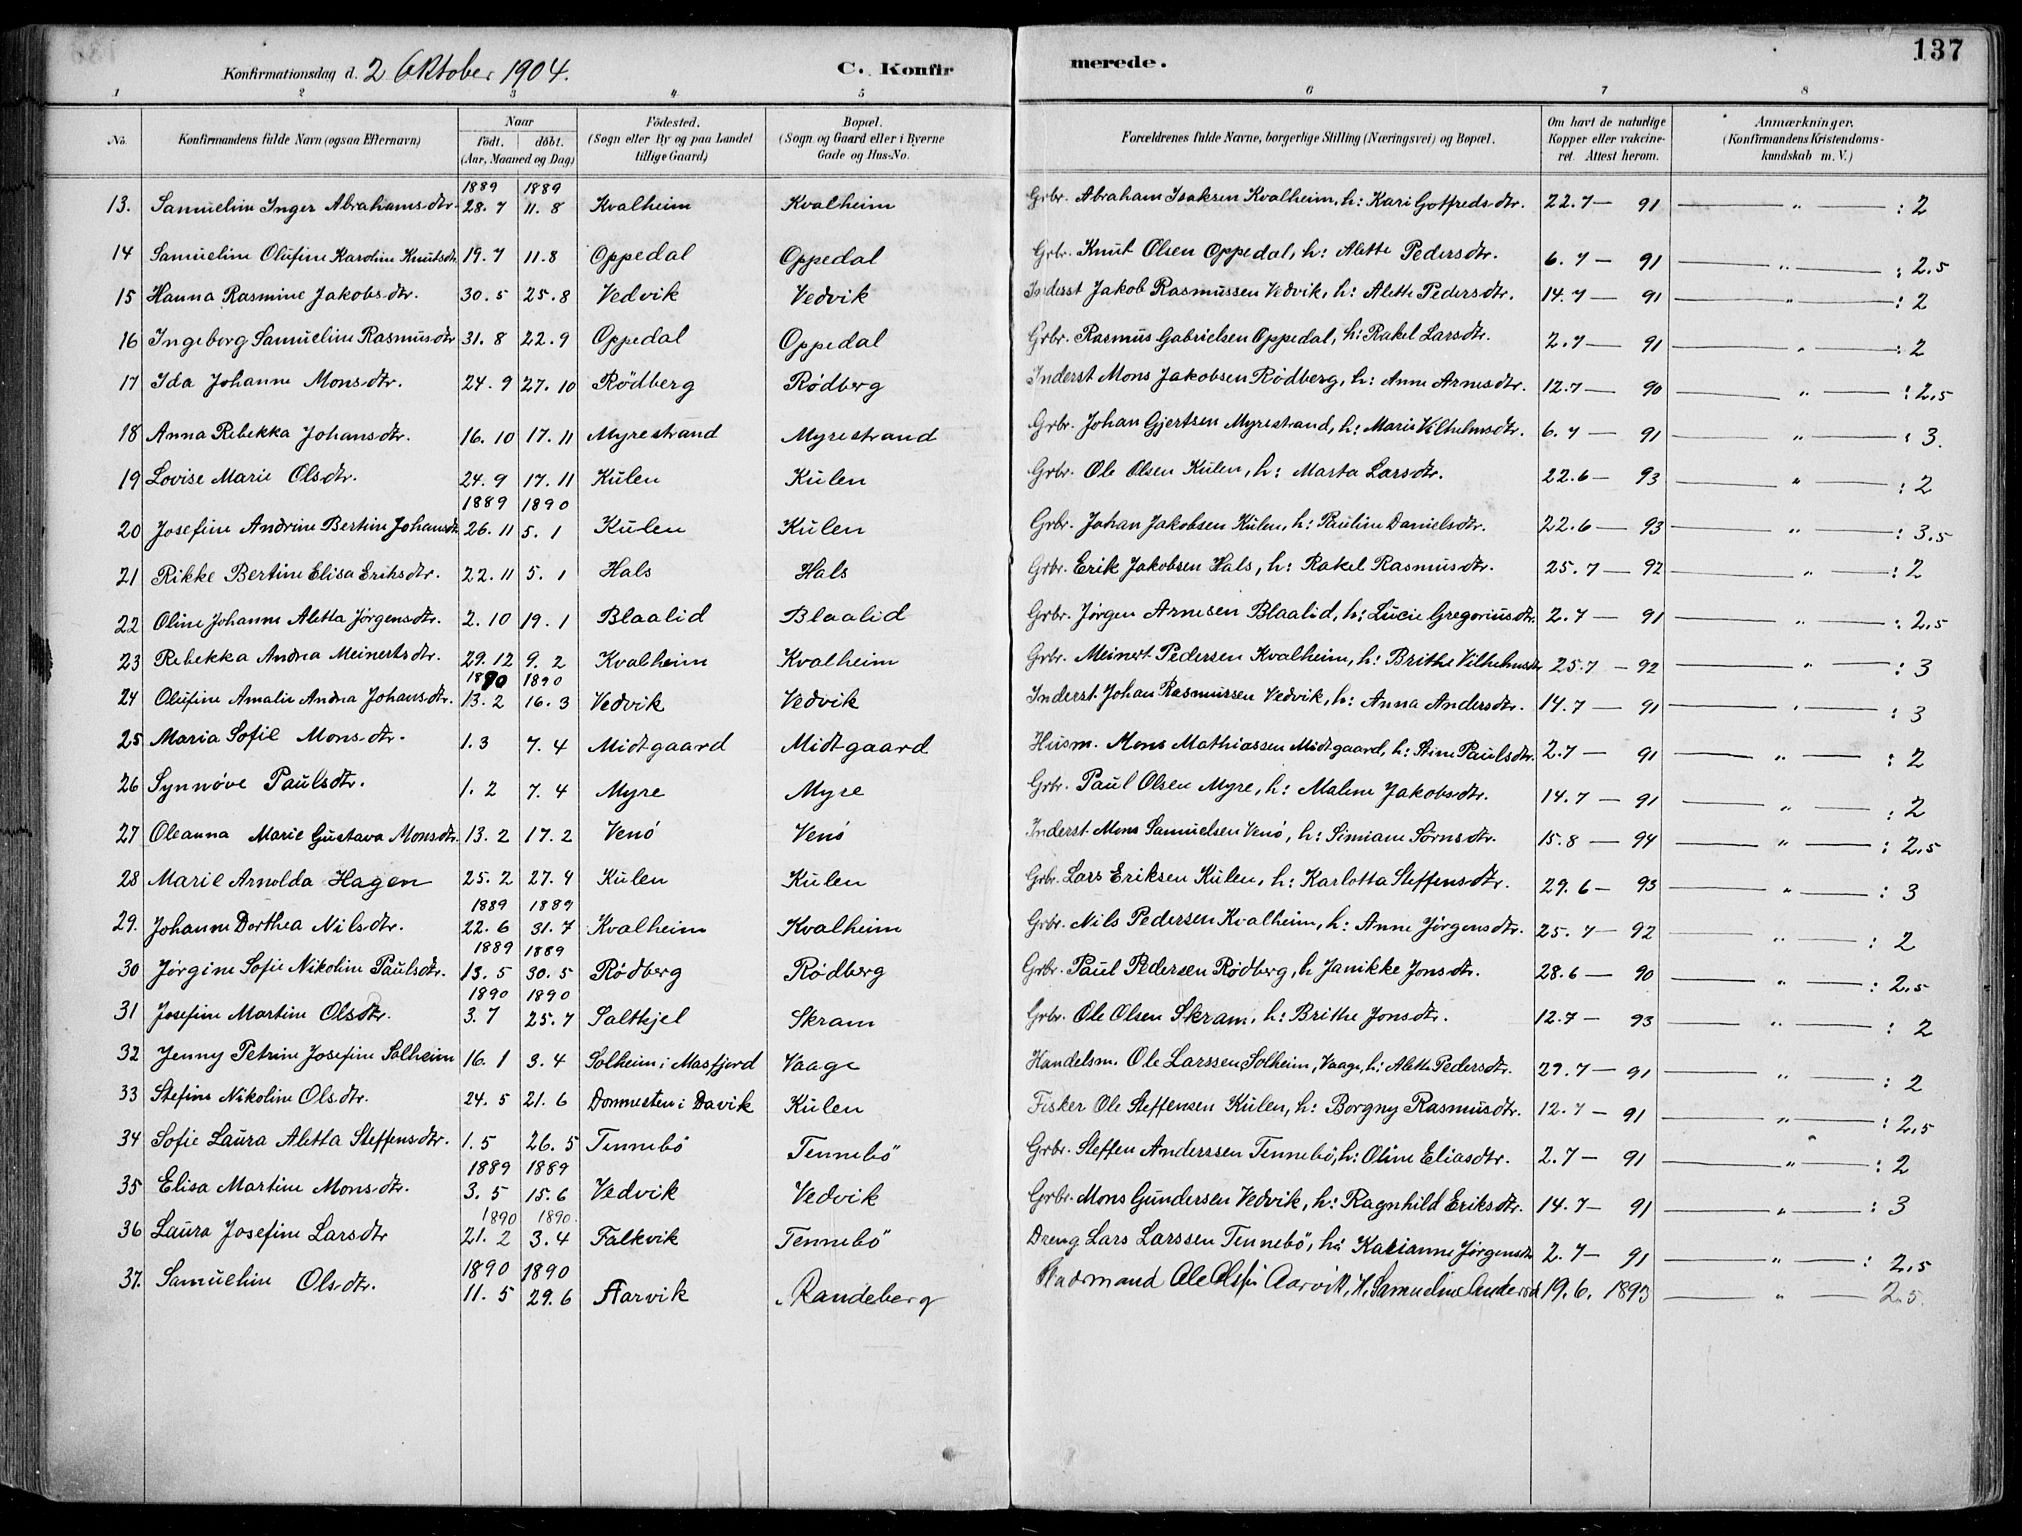 137
Konfirmationsdag d. 2 Oktober 1904. C. Konfir merede.
1 2 3 4 5 6 7 8
No. Konfirmandens fulde Navn (ogsaa Efternavn) Naar født. døbt. (Aar, Maaned og Dag) Fødested. (Sogn eller By og paa Landet tillige Gaard) Bopæl. (Sogn og Gaard eller i Byerne Gade og Hus-No. Forældrenes fulde Navne, borgerlige Stilling (Næringsvei) og Bopæl. Om havt de naturlige Kopper eller vakcineret. Attest herom. Anmærkninger. (Konfirmandens Kristendomskundskab m. V.)
1889 1889
13. Samueline Inger Abrahamsdtr. 28.7 11.8 Kvalheim Kvalheim Grbr. Abraham Isaksen Kvalheim, h: Kari Gotfredsdtr. 22.7 — 91 — " — : 2
14 Samueline Olufine Karoline Knutsdtr. 19.7 11.8 Oppedal Oppedal Grbr. Knut Olsen Oppedal, h: Alette Pedersdtr. 6.7 — 91 — " — : 2,5
15 Hanna Rasmine Jakobsdtr. 30.5 25.8 Vedvik Vedvik Inderst Jakob Rasmussen Vedvik, h: Alette Pedersdtr. 14.7 — 91 — " — : 2
16 Ingeborg Samueline Rasmusdtr 31.8 22.9 Oppedal Oppedal Grbr. Rasmus Gabrielsen Oppedal, h: Rakel Larsdtr. 2.7 — 91 — " — : 2
17 Ida Johanne Monsdtr. 24.9 27.10 Rödberg Rødberg Inderst Mons Jakobsen Rødberg, h: Anne Arnesdtr. 12.7 — 90 — " — : 2,5
18 Anna Rebekka Johansdtr. 16.10 17.11 Myrestrand Myrestrand Grbr. Johan Gjertsen Myrestrand, h: Marie Vilhelmsdtr. 6.7 — 91 — " — : 3.
19 Lovise Marie Olsdtr. 24.9 17.11 Kulen Kulen Grbr. Ole Olsen Kulen, h: Marta Larsdtr. 22.6 — 93 — " — : 2
1889 1890
20 Josefine Andrine Bertine Johansdtr 26.11 5.1 Kulen Kulen Grbr. Johan Jakobsen Kulen, h: Pauline Danielsdtr. 22.6 — 93 — " — : 3.5
21 Rikke Bertine Elisa Eriksdtr. 22.11 5.1 Hals Hals Grbr. Erik Jakobsen Hals, h: Rakel Rasmusdtr. 25.7 — 92 — " — : 2
22 Oline Johanne Aletta Jørgensdtr. 2.10 19.1 Blaalid Blaalid Grbr. Jørgen Arnesen Blaalid, h: Lucie Gregoriusdtr. 2.7 — 91 — " — : 2,5
23 Rebekka Andrea Meinertsdtr. 29.12 9.2 Kvalheim Kvalheim Grbr. Meinert Pedersen Kvalheim, h: Brithe Vilhelmsdtr 25.7 — 92 — " — : 3
1890 1890
24 Olufine Amalie Andrea Johansdtr. 13.2 16.3 Vedvik Vedvik Inderst. Johan Rasmussen Vedvik, h: Anna Andersdtr. 14.7 — 91 — " — : 3
25 Maria Sofie Monsdtr. 1.3 7.4 Midtgaard Midtgaard Husm. Mons Mathiassen Midtgaard, h: Stine Paulsdtr. 2.7 — 91 — " — : 2
26 Synnøve Paulsdtr. 1.2 7.4 Myre Myre Grbr. Paul Olsen Myre, h: Malene Jakobsdtr. 14.7 — 91 — " — : 2
27 Oleanna Marie Gustava Monsdtr. 13.2 17.2 Venö Venö Inderst. Mons Samuelsen Venö, h: Simiane Sørnsdtr. 15.8 — 94 — " — : 2,5
28 Marie Arnolda Hagen 25.2 27.4 Kulen Kulen Grbr. Lars Eriksen Kulen, h: Karlotta Steffensdtr. 29.6 — 93 — " — : 3
1889 1889
29. Johanne Dorthea Nilsdtr. 22.6 31.7 Kvalheim Kvalheim Grbr. Nils Pedersen Kvalheim, h: Anne Jørgensdtr. 25.7 — 92 — " — : 2
1889 1889
30 Jørgine Sofie Nikoline Paulsdtr. 13.5 30.5 Rødberg Rødberg Grbr. Paul Pedersen Rødberg, h Janikke Jonsdtr. 28.6 — 90 — " — : 2,5
1890 1890
31 Josefine Martine Olsdtr. 3.7 25.7 Saltkjel Skram Grbr. Ole Olsen Skram, h: Brithe Jonsdtr. 12.7 — 93 — " — : 2
32 Jenny Petrine Josefine Solheim 16.1 3.4 Solheim i Masfjord Vaage Handelsm. Ole Larssen Solheim, Vaage, h: Alette Pedersdtr. 29.7 — 91 — " — : 2
33 Stefine Nikoline Olsdtr. 24.5 21.6 Dommesten i Davik Kulen Fisker Ole Steffensen Kulen, h: Borgny Rasmusdtr. 12.7 — 91 — " — : 2,5
34 Sofie Laura Aletta Steffensdtr. 1.5 26.5 Tennebö Tennebö Grbr. Steffen Anderssen Tennebö, h: Oline Eliasdtr. 2.7 — 91 — " — : 2
1889 1889
35 Elisa Martine Monsdtr. 3.5 15.6 Vedvik Vedvik Grbr. Mons Gundersen Vedvik, h: Ragnhild Eriksdtr. 14.7 — 91 — " — : 3
1890 1890.
36 Laura Josefine Larsdtr 21.2 3.4 Falkvik Tennebö Dreng Lars Larssen Tennebö, h: Karianne Jørgensdtr 2.7 — 91 — " — : 2,5
1890 1890
37. Samueline Olsdtr. 11.5 29.6 Aarvik Randeberg Ole Olsen Aarvik, h. Samueline Andersd 19.6. 1893 — " — 2.5.